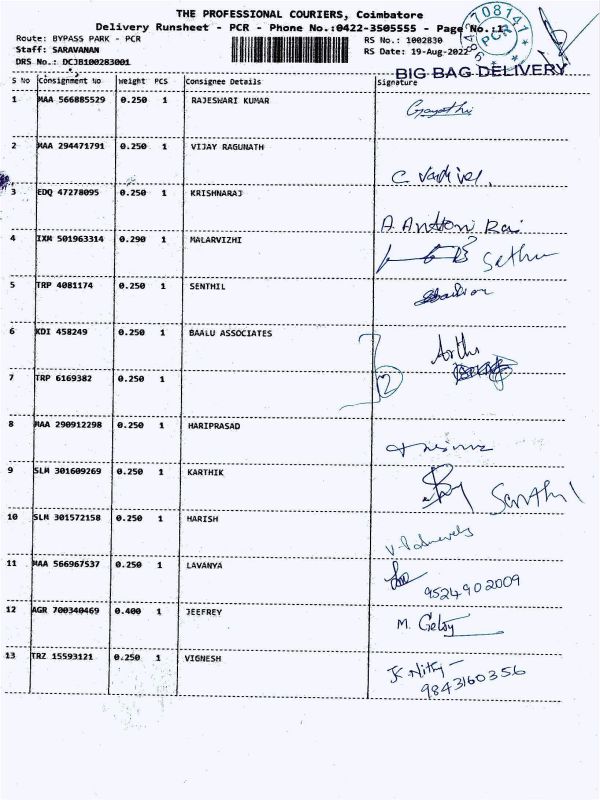 THE PROFESSIONAL COURIERS, Coimbatore
Delivery Runsheet - PCR - Phone No.:0422-3505555 - Page No.:1
Route: BYPASS PARK - PCR
Staff: SARAVANAN
DRS No.: DCJB100283001
RS No.: 1002830
RS Date: 19-Aug-2022
9842708141
PCR
BIG BAG DELIVERY
S No Consignment No Weight PCS Consignee Details Signature
1 MAA 566885529 0.250 1 RAJESWARI KUMAR Gayathri
2 MAA 294471791 0.250 1 VIJAY RAGUNATH C Vadivel.
3 EDQ 47278095 0.250 1 KRISHNARAJ A. Antoni Raj
4 IXM 501963314 0.290 1 MALARVIZHI Sethu
5 TRP 4081174 0.250 1 SENTHIL
6 KDI 458249 0.250 1 BAALU ASSOCIATES Arthi
7 TRP 6169382 0.250 1 2
8 MAA 290912298 0.250 1 HARIPRASAD
9 SLM 301609269 0.250 1 KARTHIK Senthil
10 SLM 301572158 0.250 1 HARISH
11 MAA 566967537 0.250 1 LAVANYA 9524902009
12 AGR 700340469 0.400 1 JEEFREY M. Gelsy
13 TRZ 15593121 0.250 1 VIGNESH K Nithy
9843160356